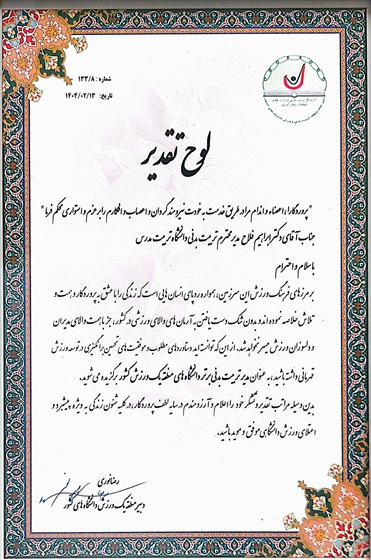 شماره : ۱۳۳/۸
تاریخ: ۱۴۰۴/۰۲/۱۳
لوح تقدیر
"پروردگارا، اعضاء و اندام مرا در طریق خدمت به خودت نیرومند گردان و اعصاب و افکارم را بر عزم و استواری محکم فرما"
جناب آقای دکتر ابراهیم فلاح مدیر محترم تربیت بدنی دانشگاه تربیت مدرس
با سلام و احترام
بر مرزهای فرهنگ ورزش این سرزمین، همواره ردپای انسان هایی است که زندگی را با عشق به پروردگار و همت و
تلاش خلاصه نموده اند و بدون شک دست یافتن به آرمان های والای ورزشی در کشور، جز با همت والای مدیران
و دلسوزان ورزش میسر نخواهد شد. از این که توانسته اید دستاوردهای مطلوب و موفقیت های تحسین برانگیزی در توسعه ورزش
قهرمانی داشته باشید، به عنوان مدیر تربیت بدنی برتر دانشگاه های منطقه یک ورزش کشور برگزیده می شوید.
بدین وسیله مراتب تقدیر و تشکر خود را اعلام و آرزومندم در سایه لطف پروردگار، در کلیه شئون زندگی به ویژه پیشبرد و
اعتلای ورزش دانشگاهی موفق و موید باشید.
رضا نوری
دبیر منطقه یک ورزش دانشگاه های کشور